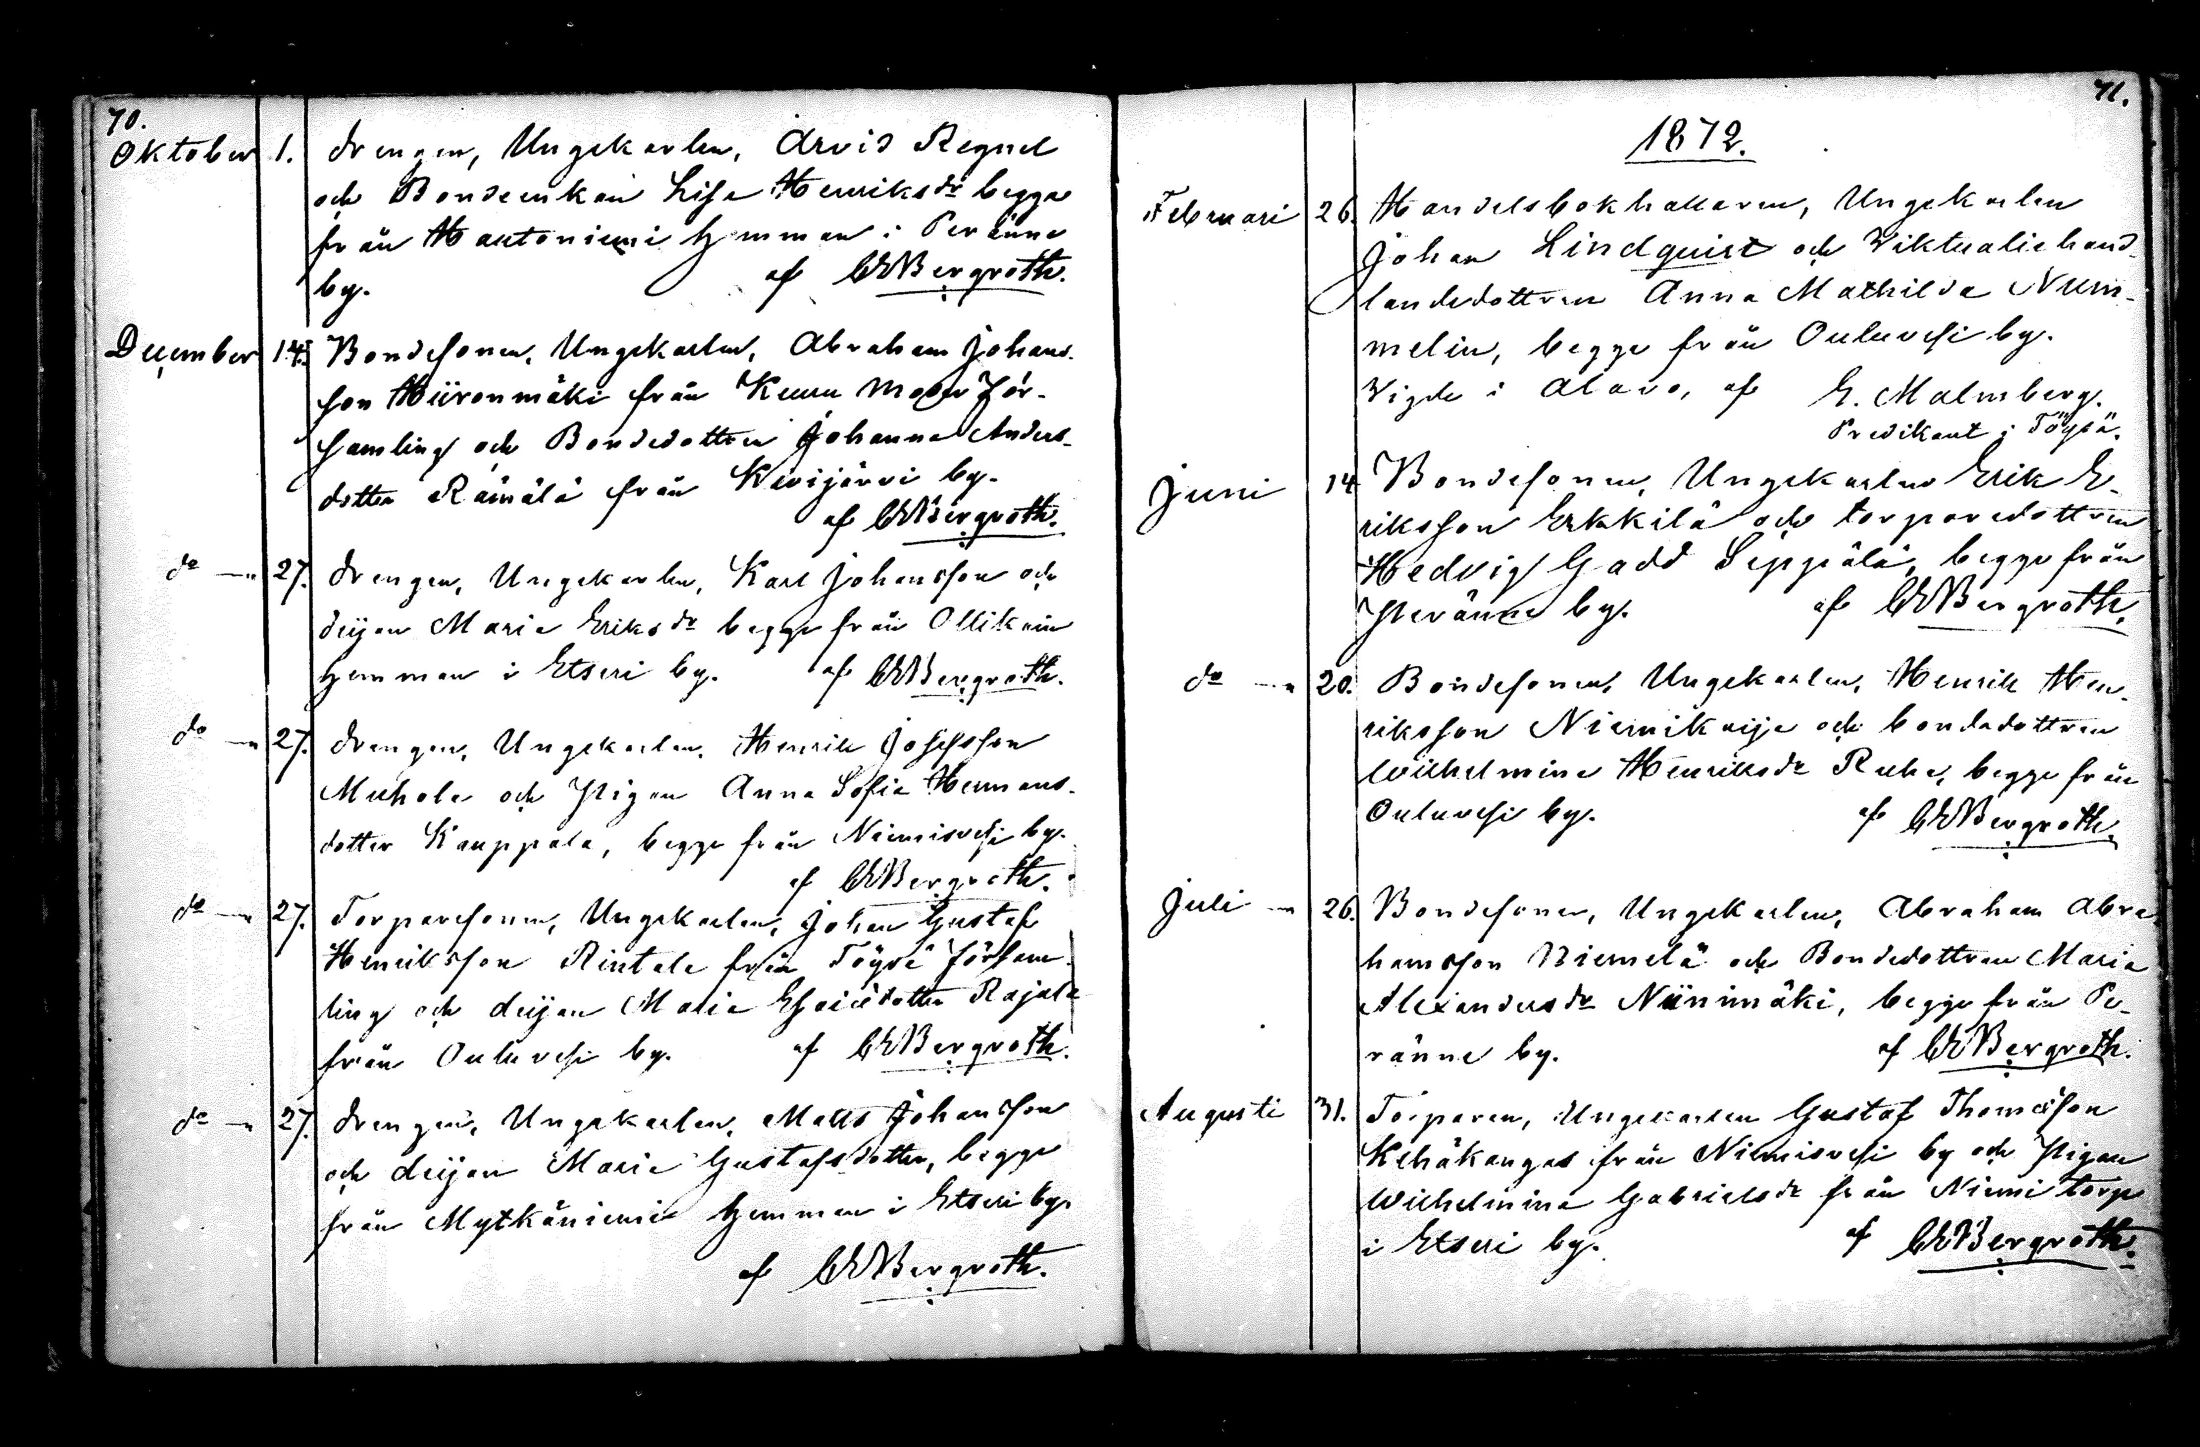 70.
Oktober 1. Drengen, Ungekarlen, Arvid Regnel
och Bondeenkan Lisa Henriksdr begge
från Hautoniemi hemman i Peränne
by. af CEBergroth.
December 14. Bondesonen, Ungekarlen, Abraham Johans-
son Hiironmäki från Keuru Moder för-
samling och Bondedottren Johanna Anders-
dotter Rämälä från Kivijärvi by.
af CEBergroth.
do — " 27. Drengen, Ungekarlen, Karl Johansson och
deijan Maria Eriksdr begge från Ollikain
hemman i Etseri by. af CEBergroth.
do — " 27. Drengen, Ungekarlen, Henrik Josefsson
Muhola och Pigan Anna Sofia Hermans-
dotter Kauppala, begge från Niemisvesi by.
af CEBergroth.
do — " 27. Torparesonen, Ungekarlen, Johan Gustaf
Henriksson Rintala från Töysä försam-
ling och deijan Maria Esaiædotter Rajala
från Ouluvesi by. af CEBergroth.
do — " 27. Drengen, Ungekarlen, Matts Johansson
och deijan Maria Gustafsdotter, begge
från Mytkäniemi hemman i Etseri by.
af CEBergroth.
71.
1872.
Februari 26. Handelsbokhållaren, Ungekarlen
Johan Lindquist och Viktualiehand-
landedottren Anna Mathilda Num-
melin, begge från Ouluvesi by.
Vigde i Alavo, af E. Malmberg.
Predikant i Töysä.
Juni 14 Bondesonen, Ungekarlen Erik E-
riksson Erkkilä och torparedottren
Hedvig Gadd Seppälä, begge från
Peränne by. af CEBergroth.
do — " 20. Bondesonen, Ungekarlen, Henrik Hen-
riksson Niemikorje och bondedottren
Wilhelmina Henriksdr Ruha, begge från
Ouluvesi by. af CEBergroth.
Juli — " 26. Bondesonen, Ungekarlen, Abraham Abra
hamsson Niemelä och Bondedottren Maria
Alexandersdr Niinimäki, begge från Pe-
ränne by. af CEBergroth.
Augusti 31. Torparen, Ungekarlen Gustaf Thomasson
Kehäkangas från Niemisvesi by och Pigan
Wilhelmina Gabrielsdr från Niemi torp
i Etseri by. af CEBergroth.